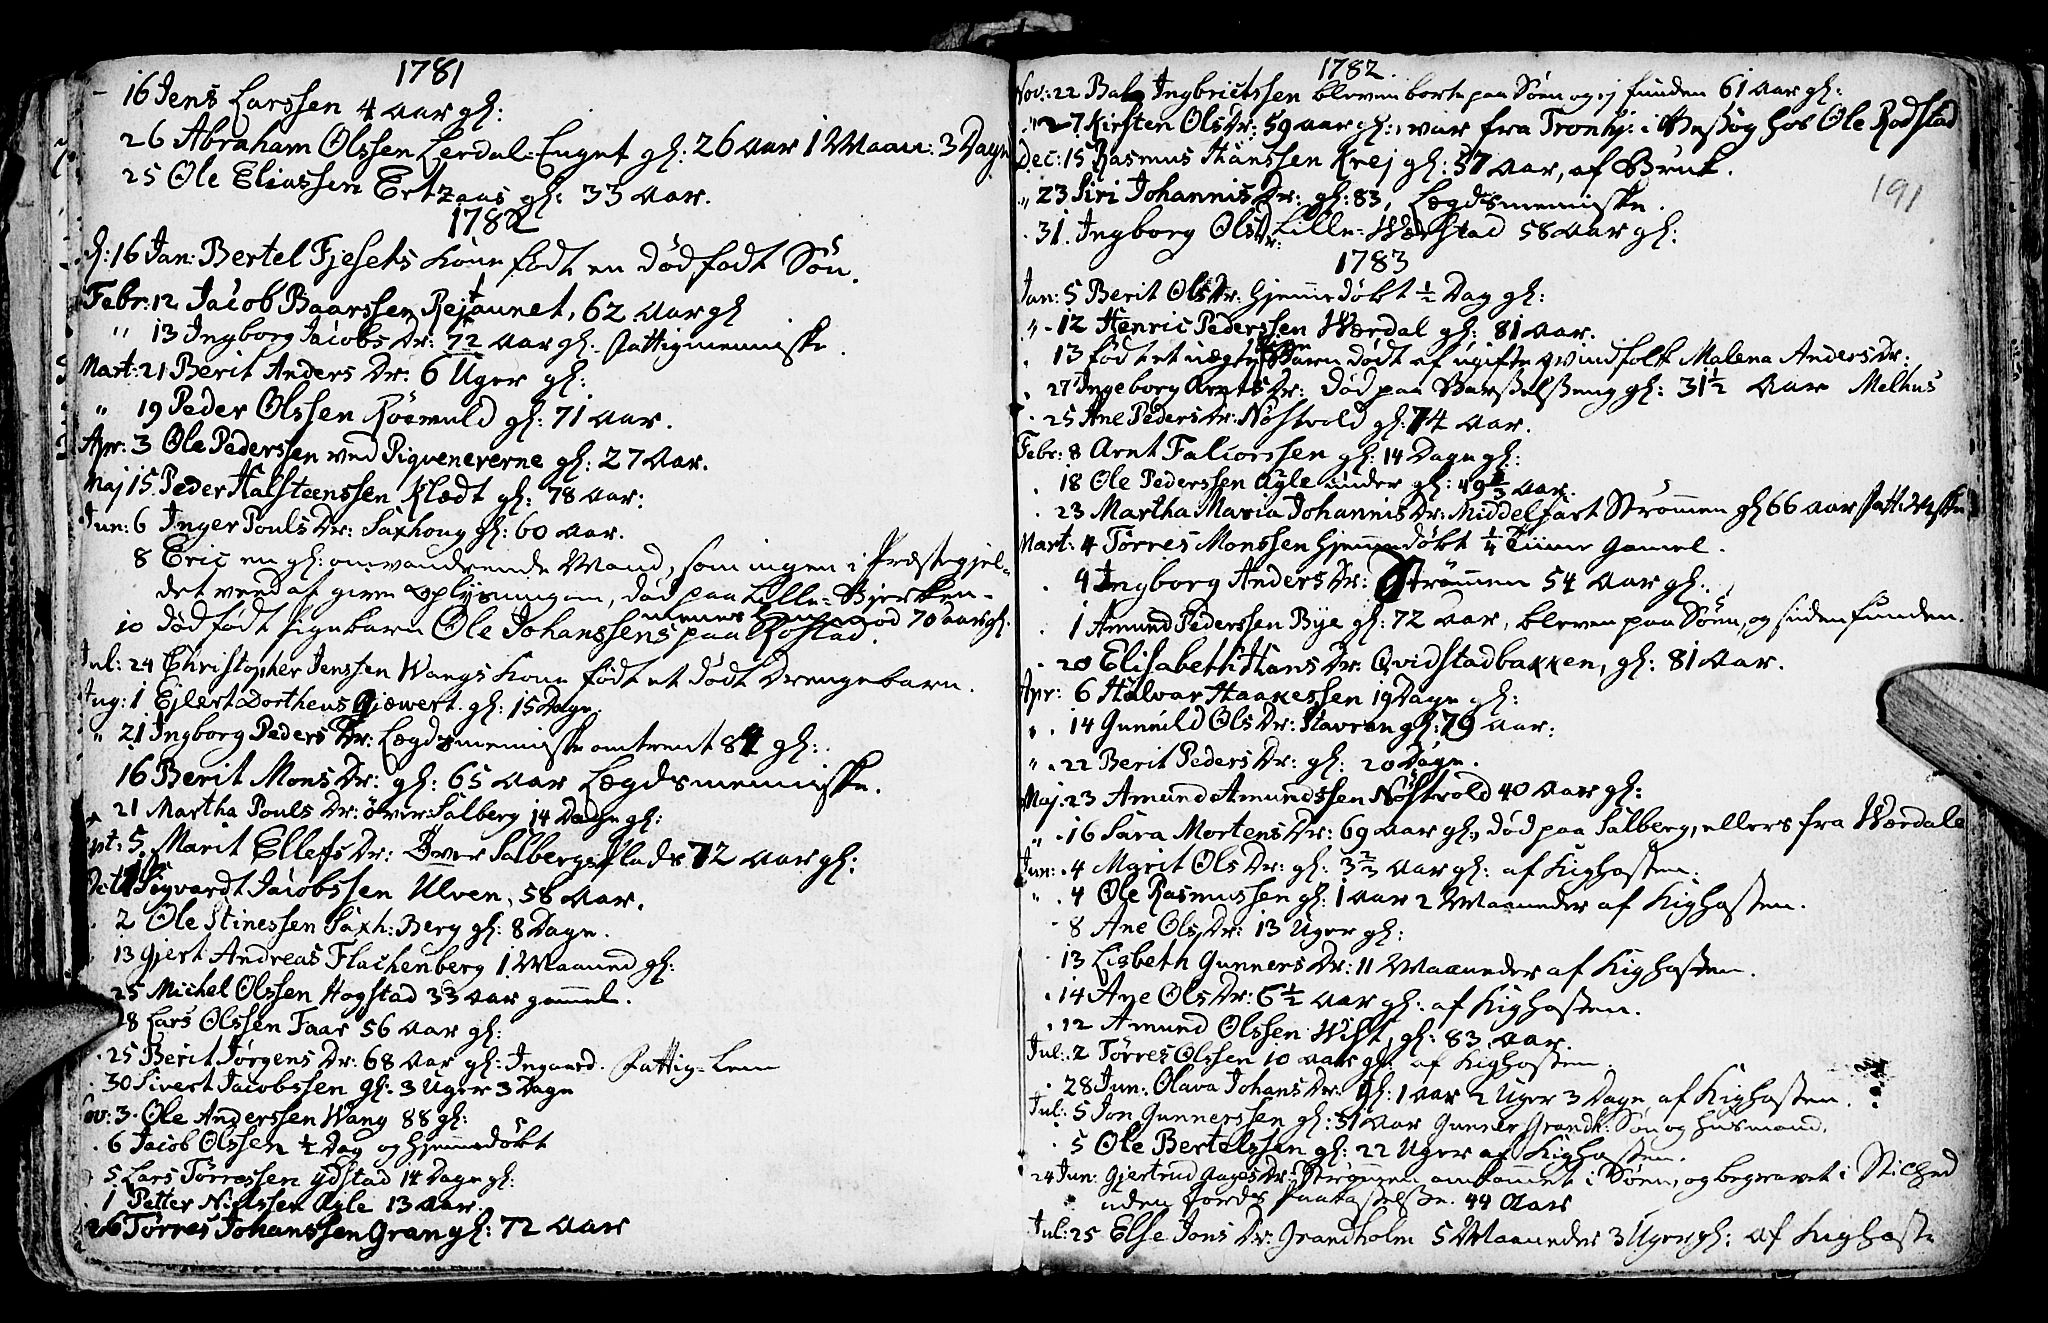 1781
16 Jens Larssen 4 Aar gl:
26 Abraham Olssen Lerdal-Enget gl: 26 Aar 1 Maan: 3 Dage
25 Ole Eliassen Ertzaas gl: 33 Aar.
1782
d: 16 Jan: Bertel Fjesets Kone født en dødfødt Søn.
Febr: 12 Jacob Baarssen Rejaunet, 62 Aar gl
" 13 Ingborg Jacobs Dr: 72 Aar gl: fattigmenniske.
Mart: 21 Berit Anders Dr: 6 Uger gl:
" 19 Peder Olssen Røemuld gl: 71 Aar.
Apr: 3 Ole Pederssen ved Piqueneverne gl: 27 Aar.
Maj 15. Peder Halsteenssen Klædt gl: 78 Aar:
Jun: 6 Inger Pouls Dr: Saxhoug gl: 60 Aar.
8 Eric en gl: omvandrende Mand, som ingen i Præstegiel-
det veed af give oplysning om, død paa Lille-Bjerken-
menes imod 70 Aar gl.
10 dødfødt pigebarn Ole Johanssens paa Rostad.
Jul: 24 Christopher Jenssen Wangs Kone født et dødt Drengebarn.
Aug: 1 Ejlert Dortheus Gjæwert gl: 15 Dage.
" 21 Ingborg Peders Dr: Lægdsmenniske omtrent 84 gl:
16 Berit Mons Dr: gl: 65 Aar Lægdsmenniske.
21 Martha Pouls Dr: over Salberg 14 Dage gl:
Sept: 5. Marit Ellefs Dr: Over Salbergs Plads 72 Aar gl:
Oct: Sigvardt Jacobssen Ulven, 58 Aar.
2 Ole Stinessen Saxh: Berg gl: 8 Dage.
13 Gjert Andreas Flachenberg 1 Maaned gl:
25 Michel Olssen Hogstad 33 Aar gammel.
28 Lars Olssen Faar 56 Aar gl:
25 Berit Jørgens Dr: 68 Aar gl: Ingaard. Fattig-Lem
30 Sivert Jacobssen gl: 3 Uger 3 Dage
Nov: 3. Ole Anderssen Wang 88 gl:
6 Jacob Olssen ½ Dag og hjemmedøbt
5. Lars Tørressen Ydstad 14 Dage gl:
1 Petter Nielssen Agle 13 Aar.
26 Tørres Johanssen Gran gl: 72 Aar
1782.
Nov: 22 Ingbrictssen bleven borte paa Søen og ej funden 61 Aar gl:
" 27 Kirsten Ols Dr: 59 Aar gl:, var fra Tronhj: i Besøg hos Ole Rodstad
Dec: 15 Rasmus Hanssen Krej gl: 37 Aar, af Bruk.
" 23 Siri Johannis Dr: gl: 83, Lægdsmenniske.
31. Ingborg Ols Dr: Lille-Wærstad 58 Aar gl:
191
1783
Jan: 5 Berit Ols Dr: hjemmedøbt ½ Dag gl:
" 12 Henric Pederssen Wærdal gl: 81 Aar.
13 født et uægte Barn dødt af ugifte qvindfolk Malena Anders Dr:
27 Ingeborg Arnts Dr: død paa Barselseng gl: 31½ Aar Melhus
25 Ane Peders Dr: Nøstvold gl: 74 Aar.
Febr: 8 Arnt Falcorssen gl: 14 Dage gl:
18 Ole Pederssen Agle under gl: 49 Aar.
23 Martha Maria Johannis Dr: Middelfart Strømmen gl 66 Aar
Mart: 4 Tørres Monssen hjemmedøbt ¼ Time Gamel.
4 Ingborg Anders Dr: Strømmen 54 Aar gl:
1 Amund Pederssen Bye gl: 72 Aar, bleven paa Søen, og siden funden.
20 Elisabeth Hans Dr: Qvidstadbakken, gl: 81 Aar.
Apr: 6 Halvar Haakessen 19 Dage gl:
14 Gunnild Ols Dr: Stavran gl: 79 Aar:
" 22 Berit Peders Dr: gl: 20 Dage.
Maj: 23 Amund Amundssen Nøstvold 40 Aar gl:
" 16 Sara Mortens Dr: 69 Aar gl:, død paa Salberg, ellers fra Wærdale
Jun: 4 Marit Ols Dr: gl: 3⅔ Aar gl: af Kighosten.
" 4 Ole Rasmussen gl: 1 Aar 2 Maaneder af Kighosten.
8 Ane Ols Dr: 13 Uger gl:
13 Lisbeth Gunners Dr: 11 Maaneder af Kighosten.
14 Ane Ols Dr: 6½ Aar gl: af Kighosten.
12 Amund Olssen Wist, gl: 83 Aar.
Jul: 2 Tørres Olssen 10 Aar gl: af Kighosten.
28 Jun: Olava Johans Dr: gl: 1 Aar 2 Uger 3 Dage af Kighosten.
Jul: 5 Jon Gunnerssen gl: 51 Aar Gunner Grandh: Søn og husmand.
5 Ole Bertelssen gl: 22 Uger af Kighosten.
24 Jun: Gjertrud Aages Dr: Strømmen omkommet i Søen, og begravet i Stilhed
uden Jords Paakastelse. 44 Aar
Jul: 25 Else Jons Dr: Grandholm 5 Maaneder 3 Uger gl: af Kighoste